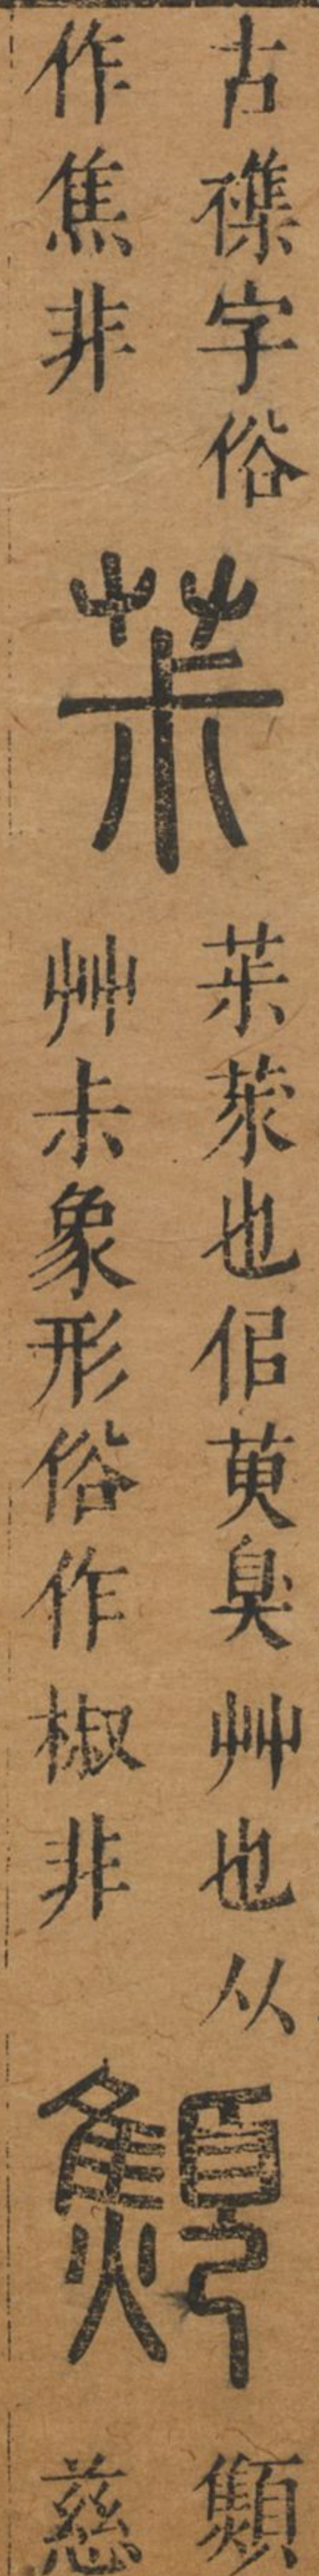 古𥼚字俗
作焦非
茮
茮莍也佀萸臭艸也从
艸尗象形俗作椒非
顦
顦
慈